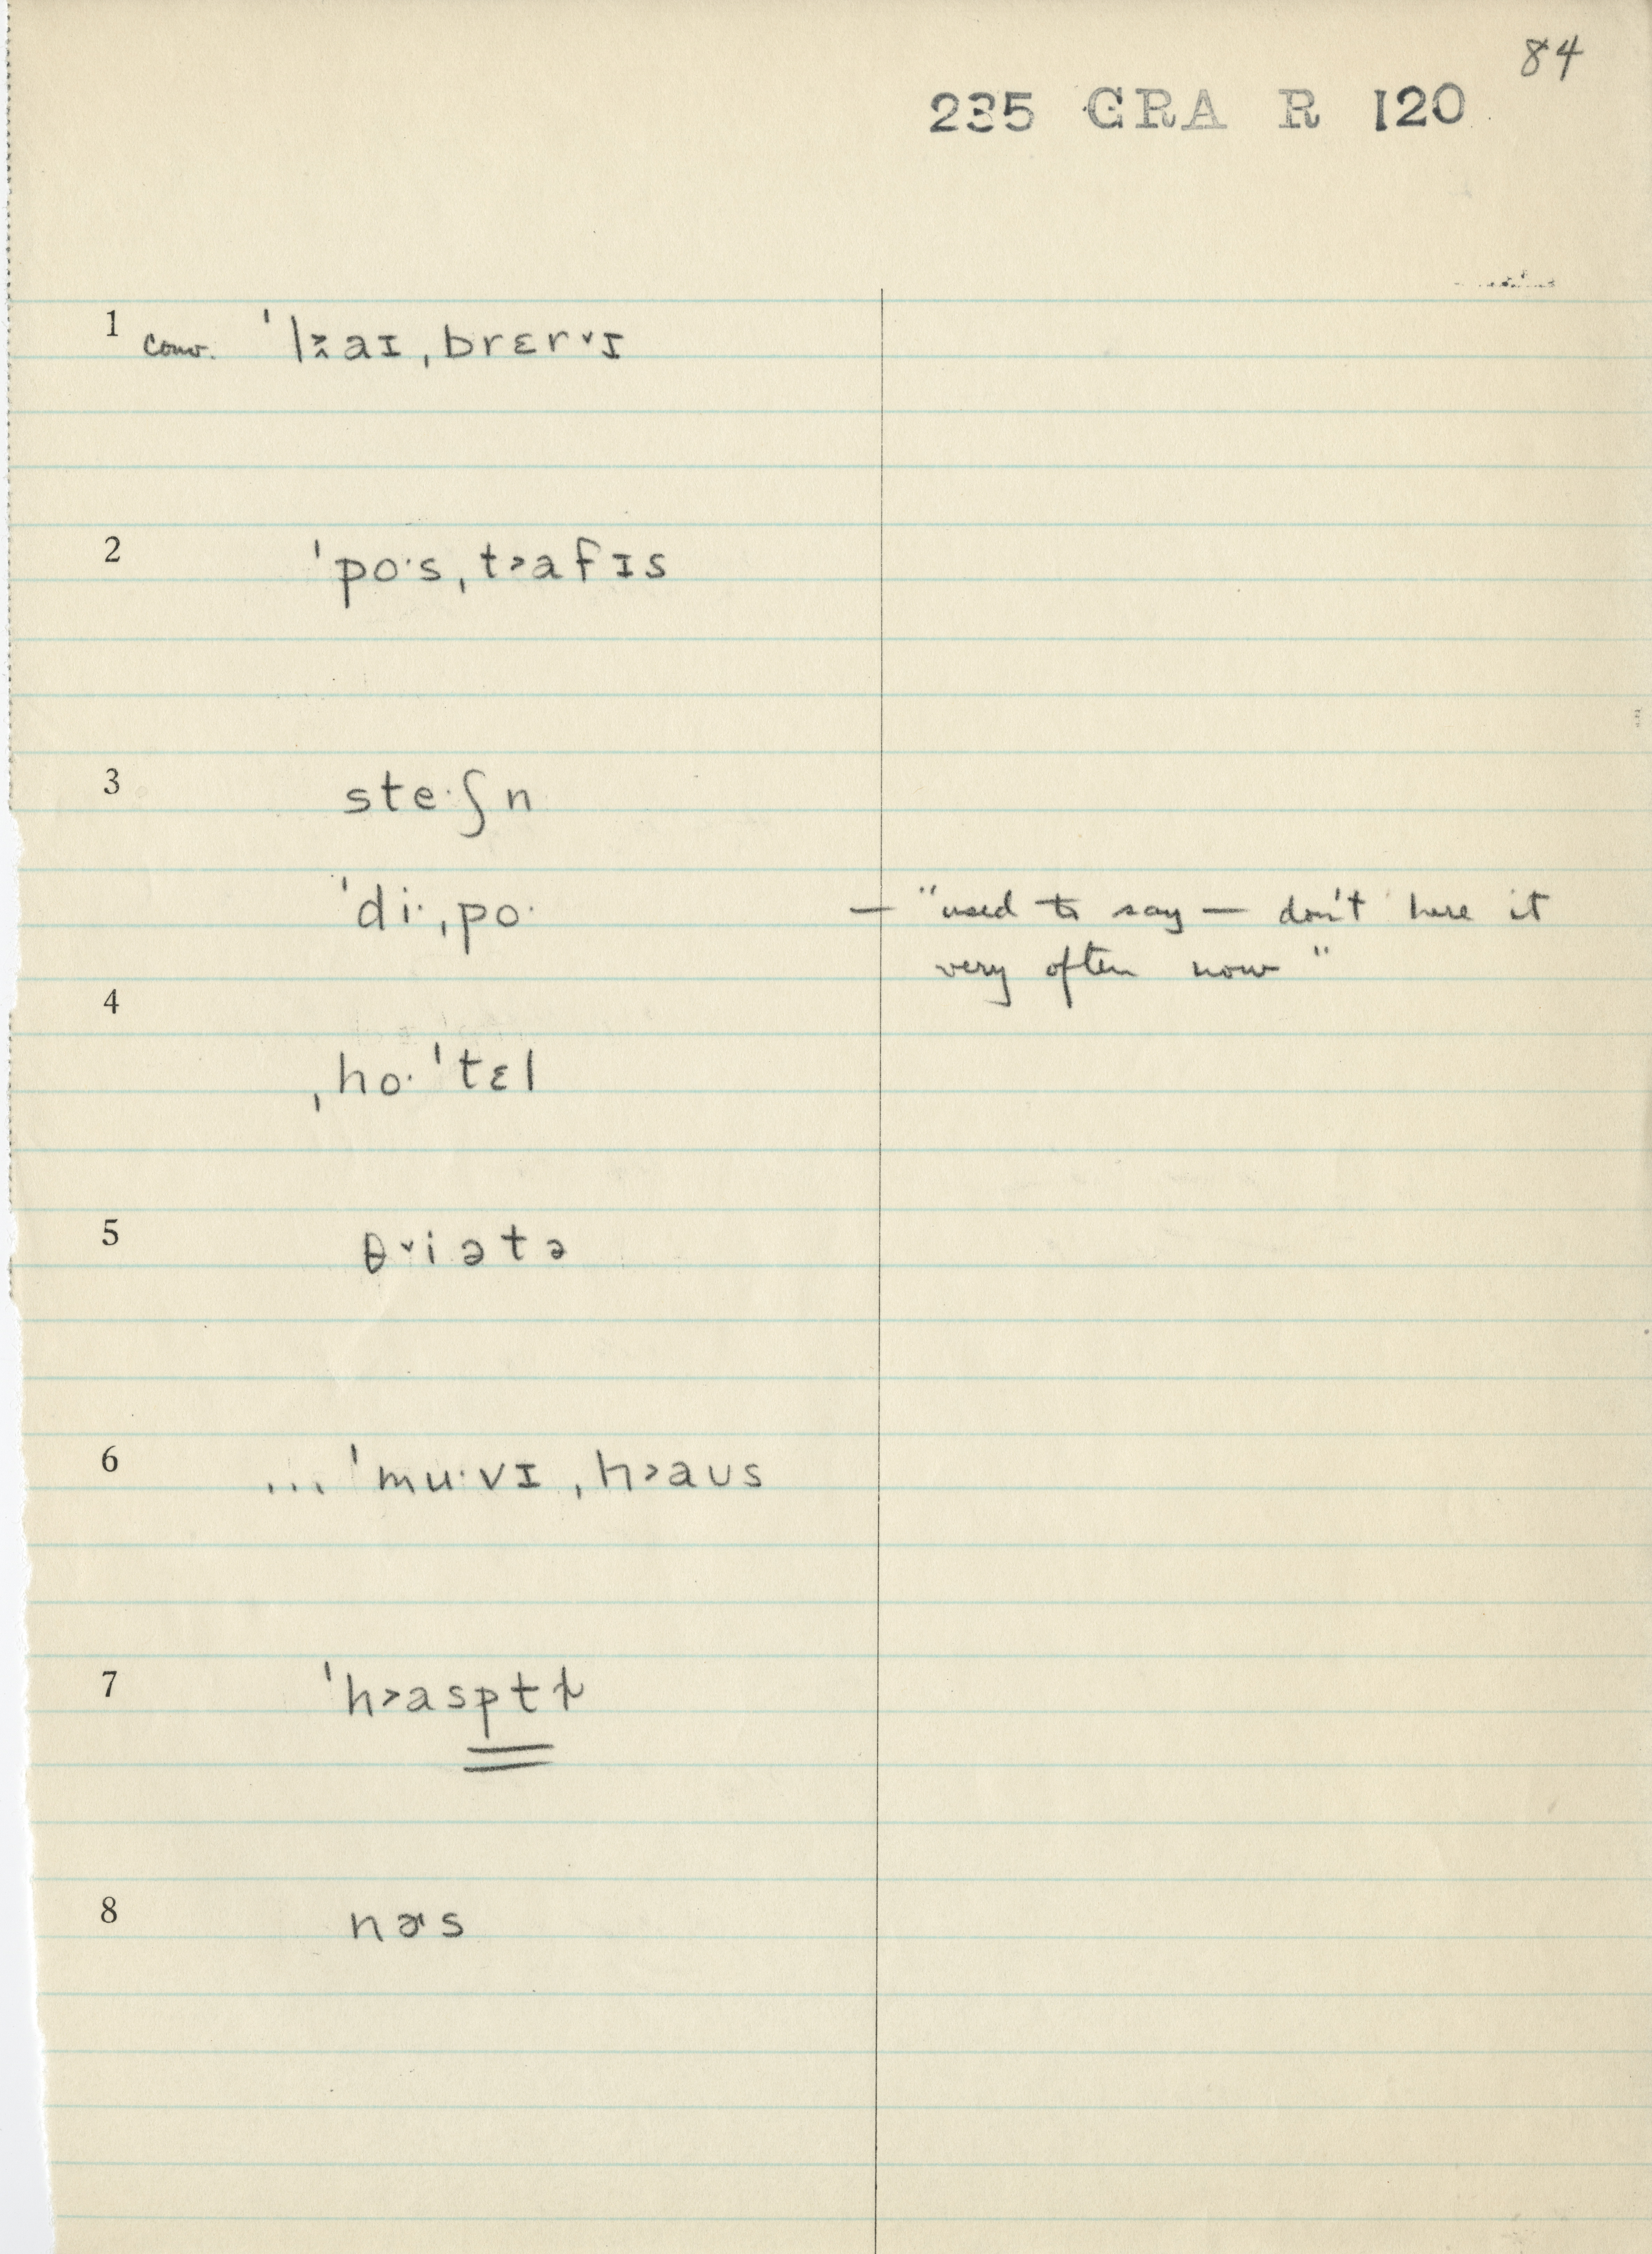 84
235 GRA R 120
1 conv. ˈl˃̭aɪˌbrɛr˅ɪ
2 ˈpo·sˌt˃afɪs
3 ste·ʃn
ˈdi·ˌpo· — "used to say — don't here it
very often now"
4
ˌho·ˈtɛl
5 θ˅iətə
6 ... ˈmu·vɪˌh˃aʊs
7 ˈh˃asptɫ
8 nɚs